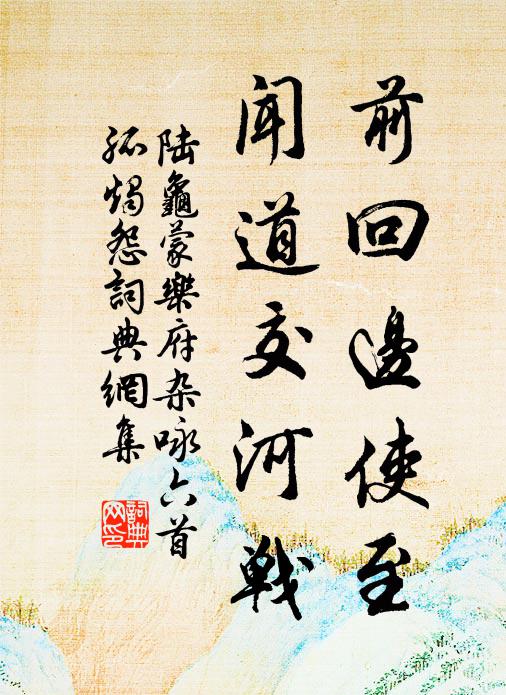 前回邊使至
聞道交河戰
陸龜蒙樂府杂咏六首
孤燭怨詞典網集
詞典
网印